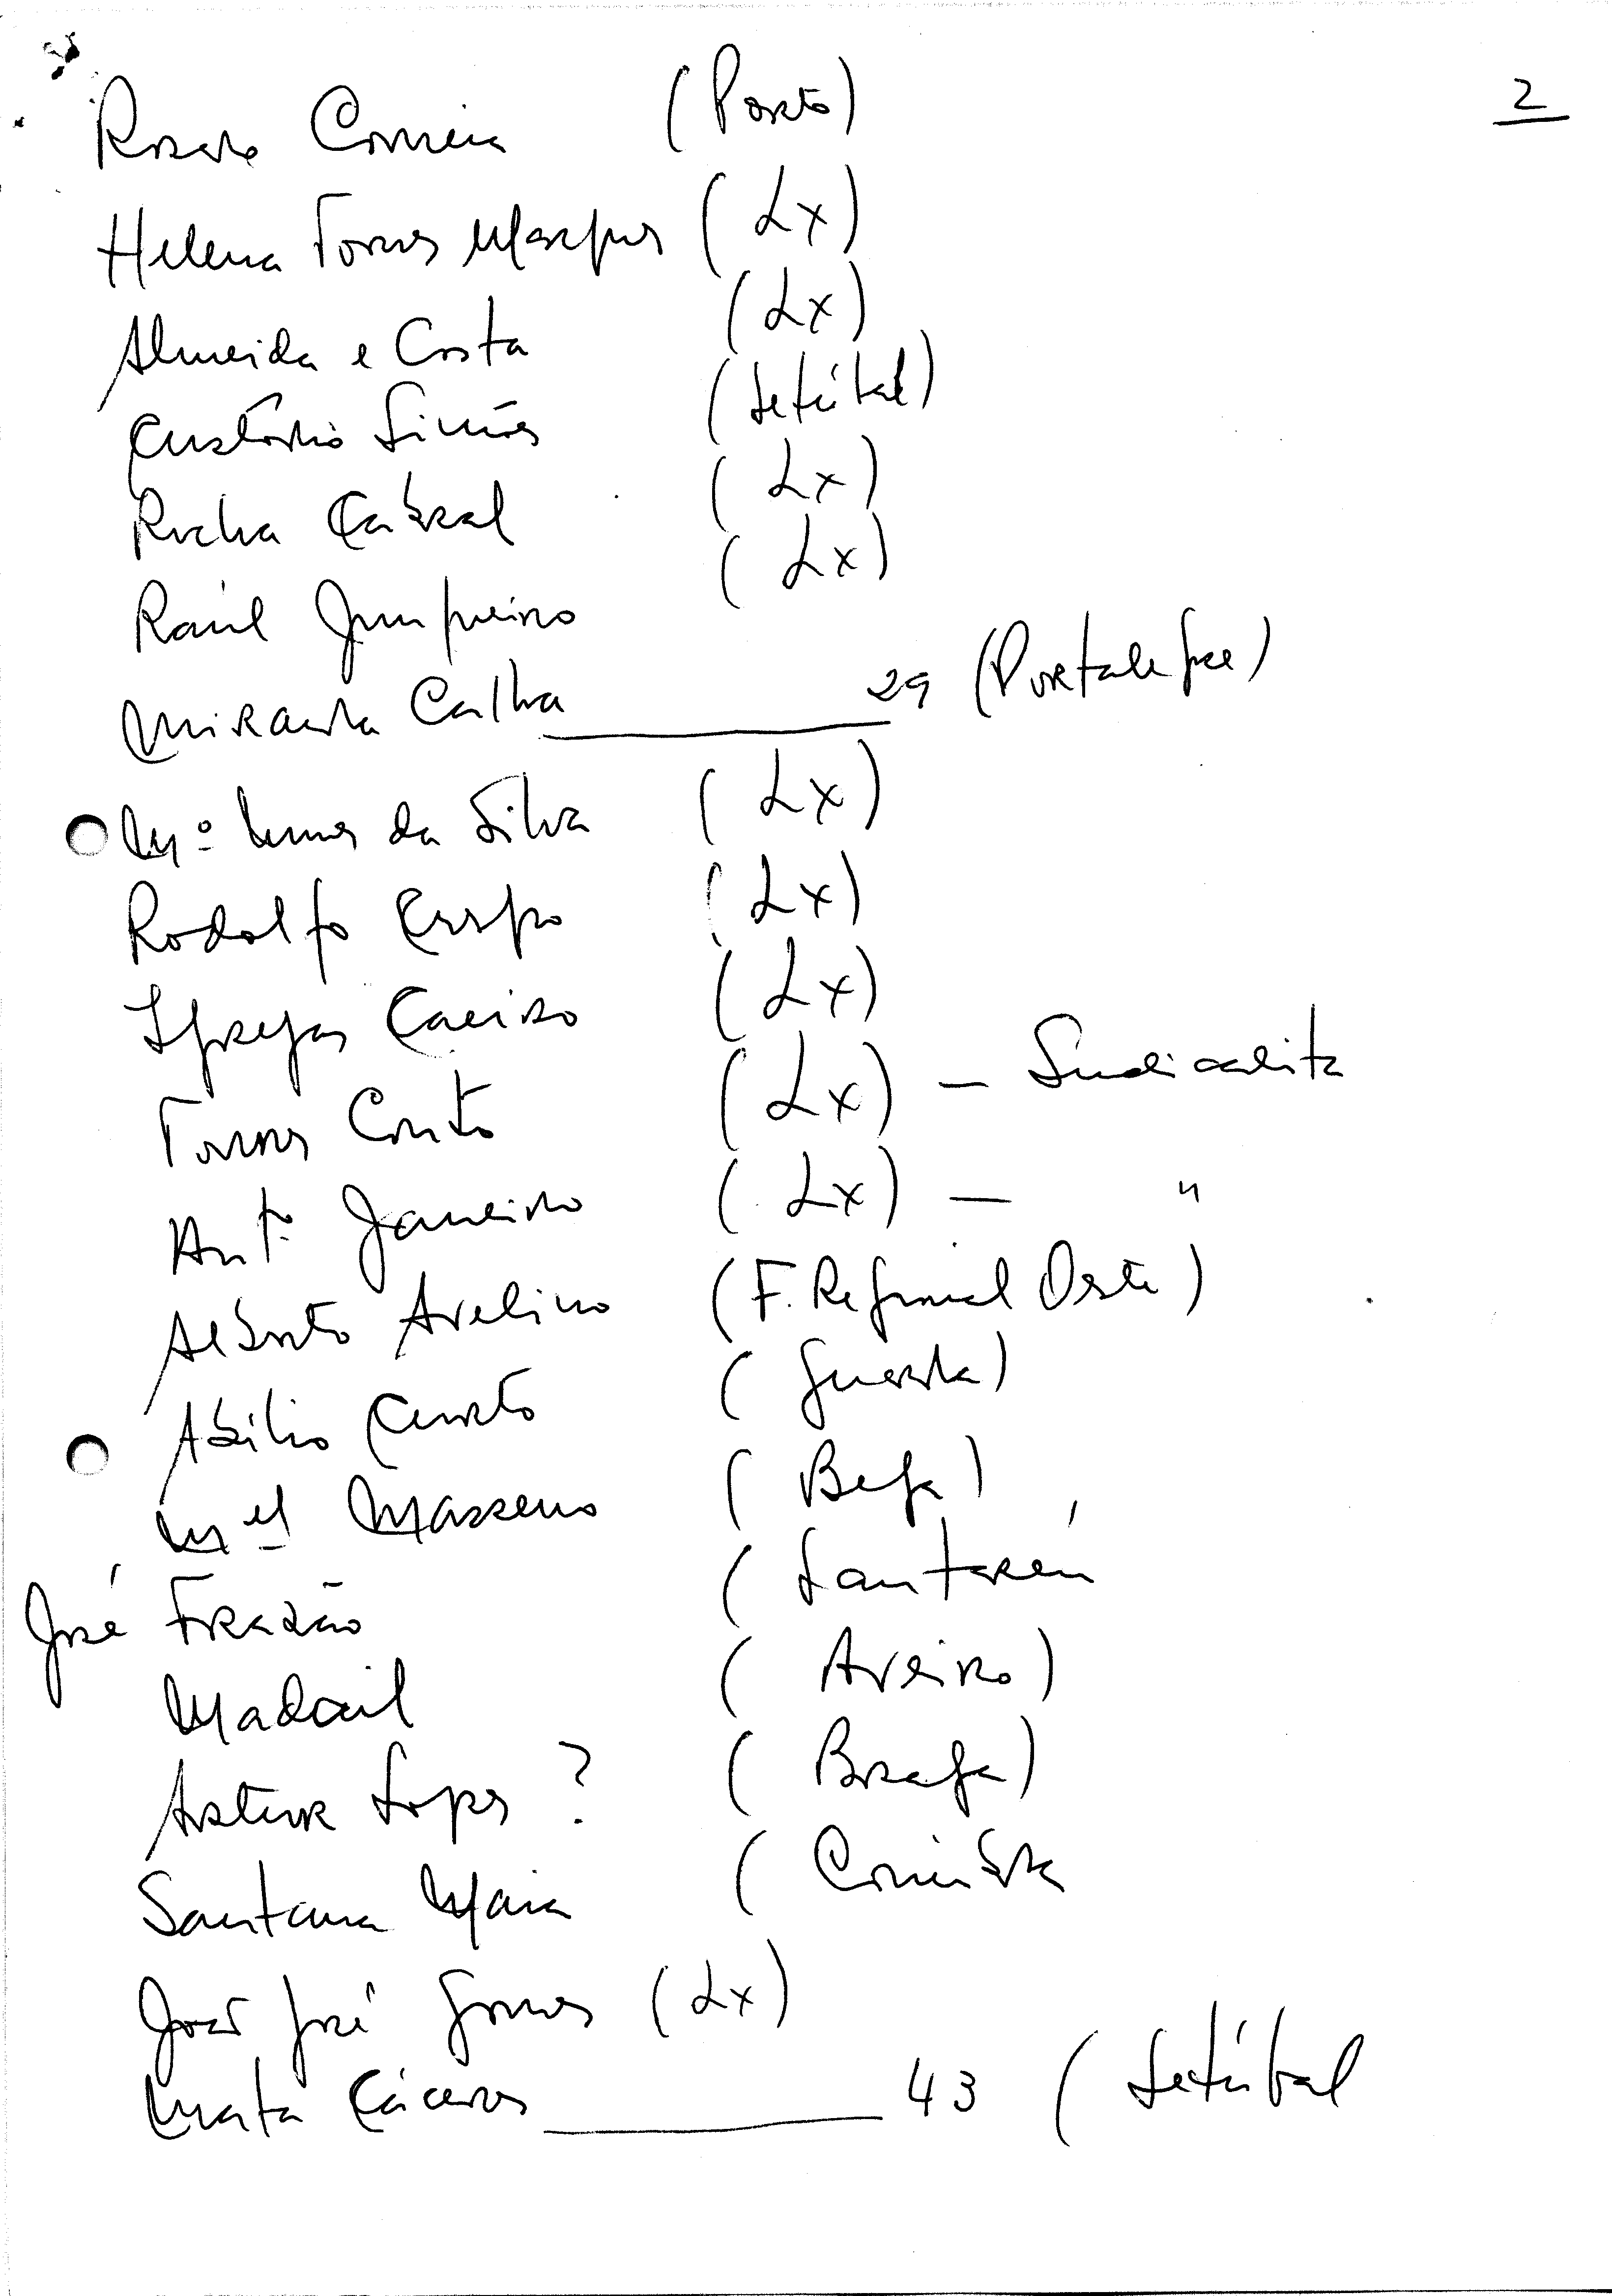 2
Rosado Correia (Porto)
Helena Torres Marques (Lx)
Almeida e Costa (Lx)
Custódio Simões (Setúbal)
Rocha Cabral (Lx)
Raúl Junqueiro (Lx)
Miranda Calha 29 (Portalegre)
da Silva (Lx)
Rodolfo Crespo (Lx)
Igrejas Caeiro (Lx)
Torres Couto (Lx) – Sindicalista
Antº Janeiro (Lx) – "
Alberto Avelino (F. Regional Oeste)
Abílio Curto (Guarda)
Mel Masseno (Beja)
José Frazão (Santarém
Madail (Aveiro)
Artur Lopes ? (Braga)
Santana Maia (Coimbra
João José Gomes (Lx)
Mata Cáceres 43 (Setúbal